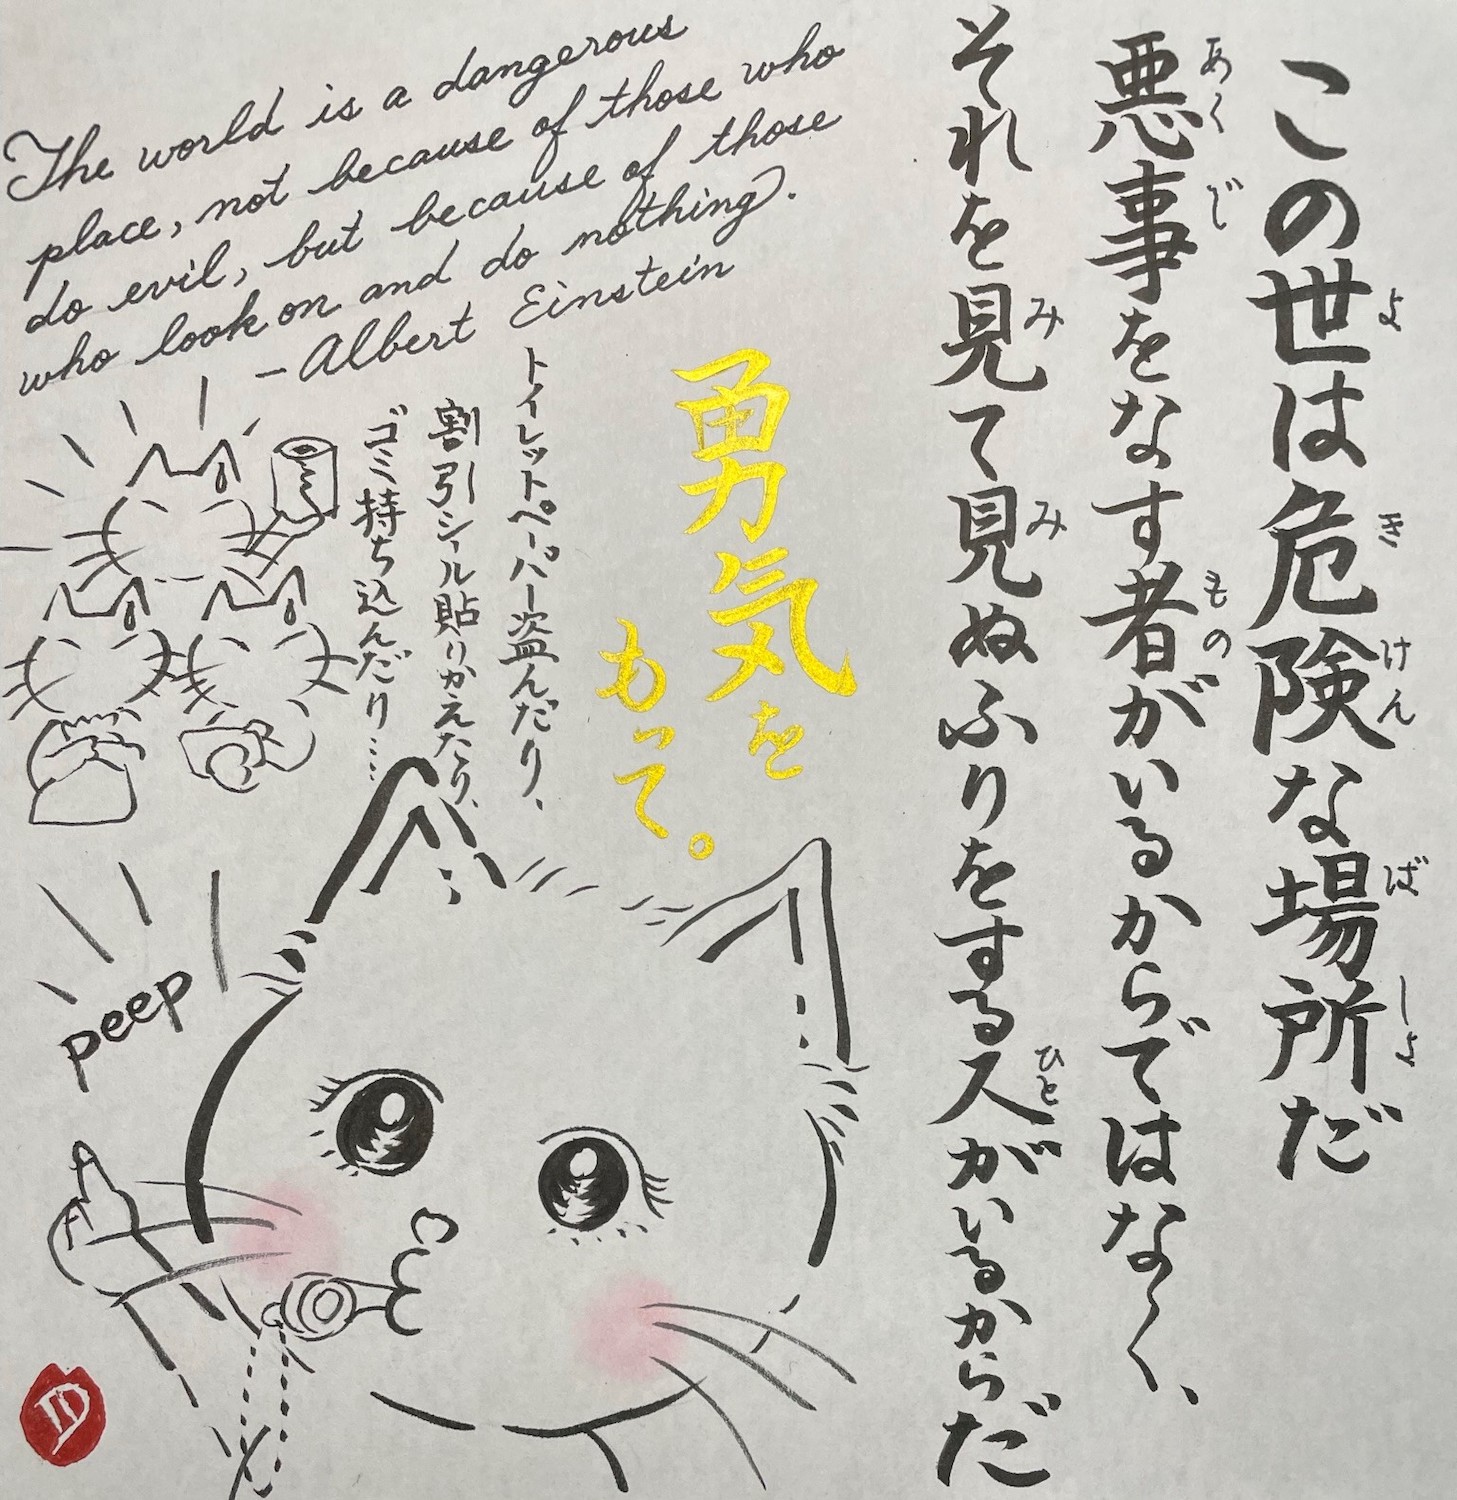 この世は危険な場所だ
よ
きけん
ばしょ
悪事をなす者がいるからではなく、
あくじ
もの
それを見て見ぬふりをする人がいるからだ
み
み
ひと
The world is a dangerous
place, not because of those who
do evil, but because of those
who look on and do nothing.
- Albert Einstein
勇気を
もって。
トイレットペーパー盗んだり、
割引シール貼りかえたり、
ゴミ持ち込んだり……
peep